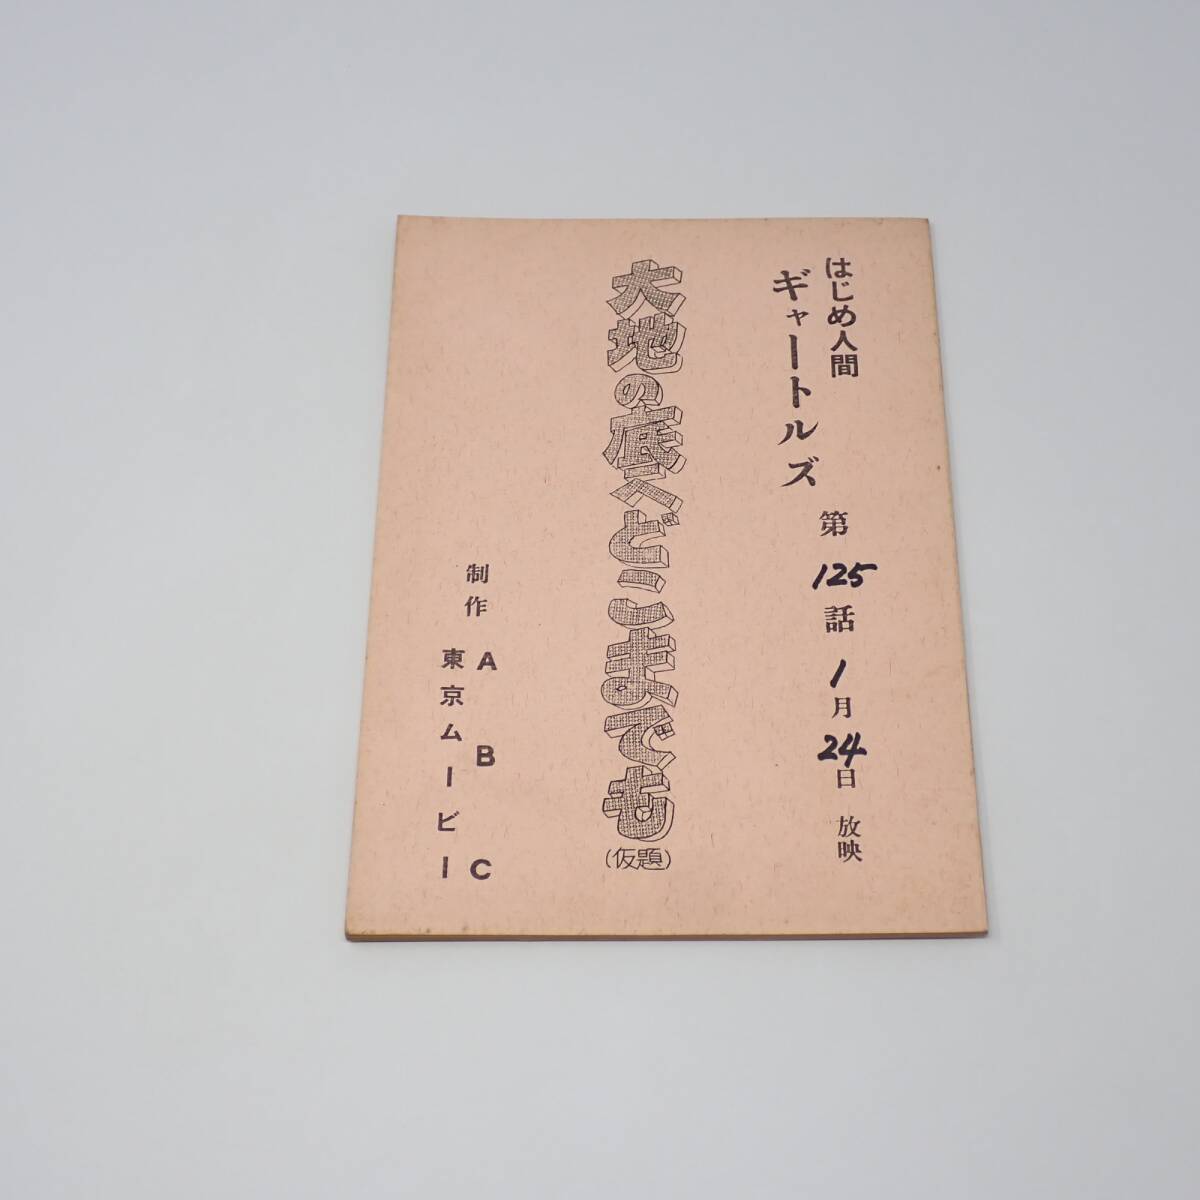 はじめ人間
ギャートルズ
第125話 1月24日 放映
大地の底へどこまでも(仮題)
制作
ABC
東京ムービー